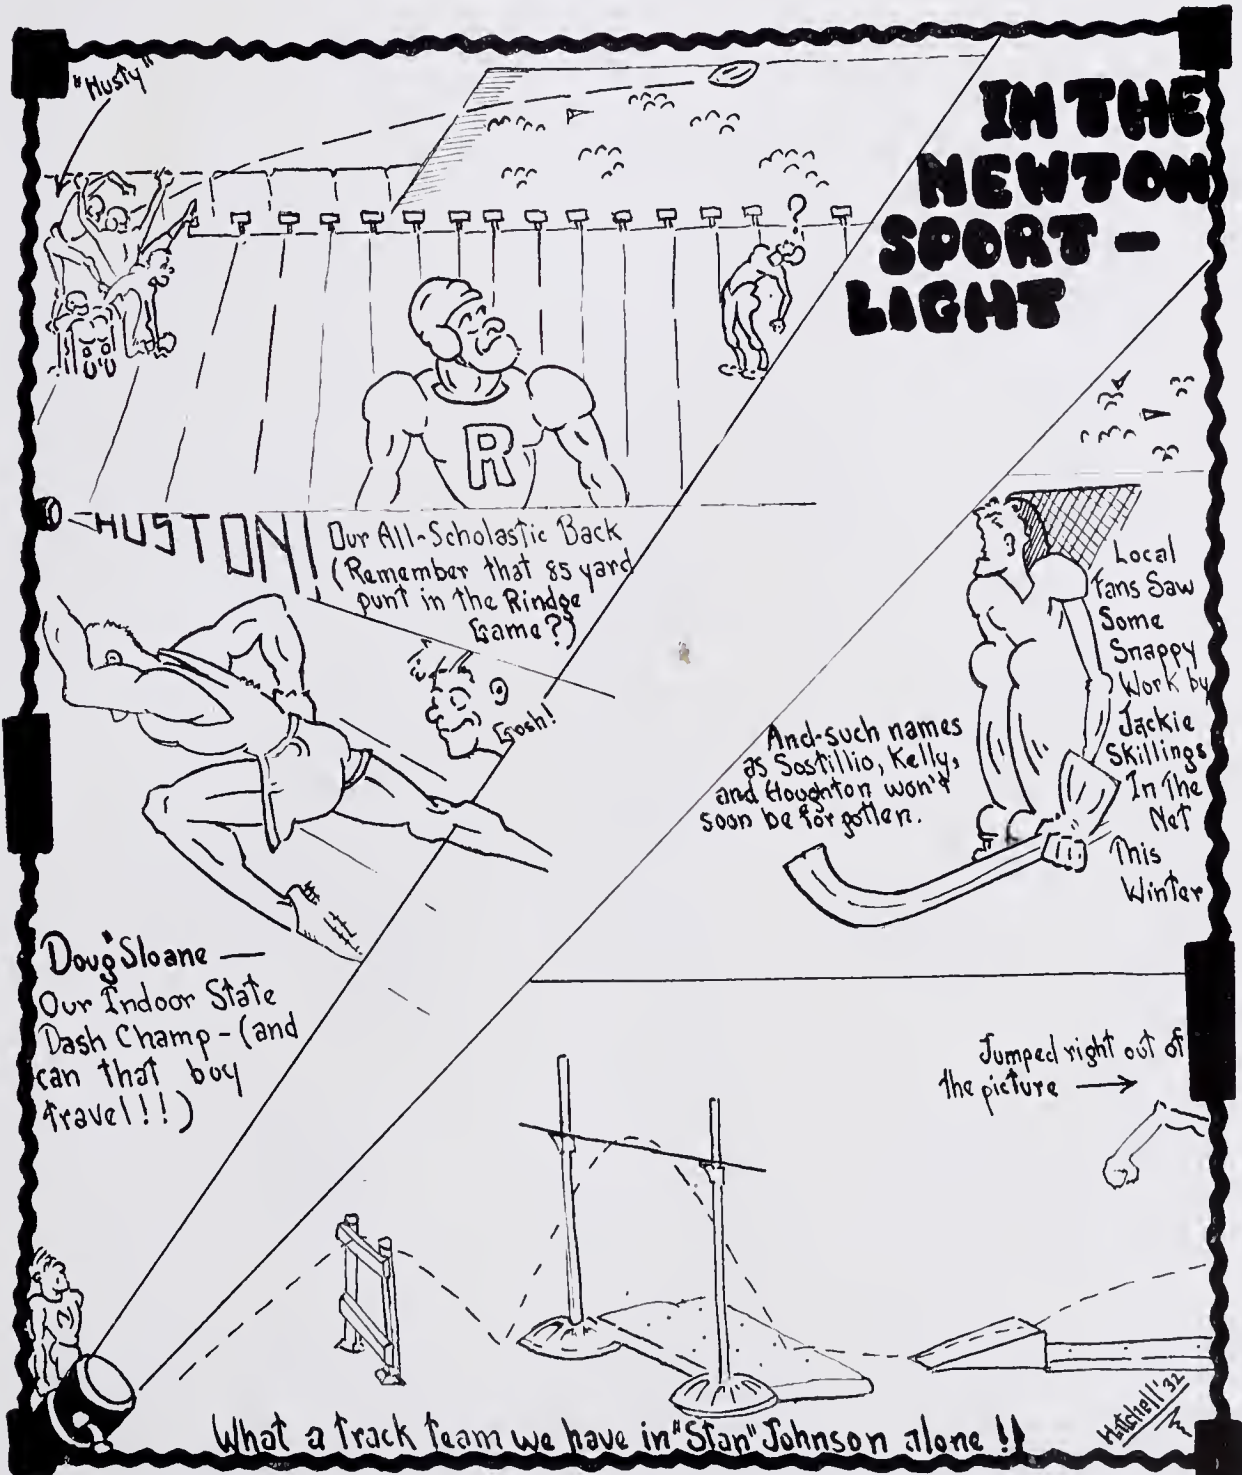 "Husty"
IN THE
NEWTON
SPORT-
LIGHT
?
R
HUSTON!
Our All-Scholastic Back
(Remember that 85 yard
punt in the Rindge
Game?)
Gosh!
Local
Fans Saw
Some
Snappy
Work by
Jackie
Skillings
In The
Net
This
Winter
And-such names
as Sostillio, Kelly,
and Houghton won't
soon be forgotten.
"Doug" Sloane —
Our Indoor State
Dash Champ - (and
can that boy
travel!!)
Jumped right out of
the picture →
N
What a track team we have in "Stan" Johnson alone!!
Hatchell '32